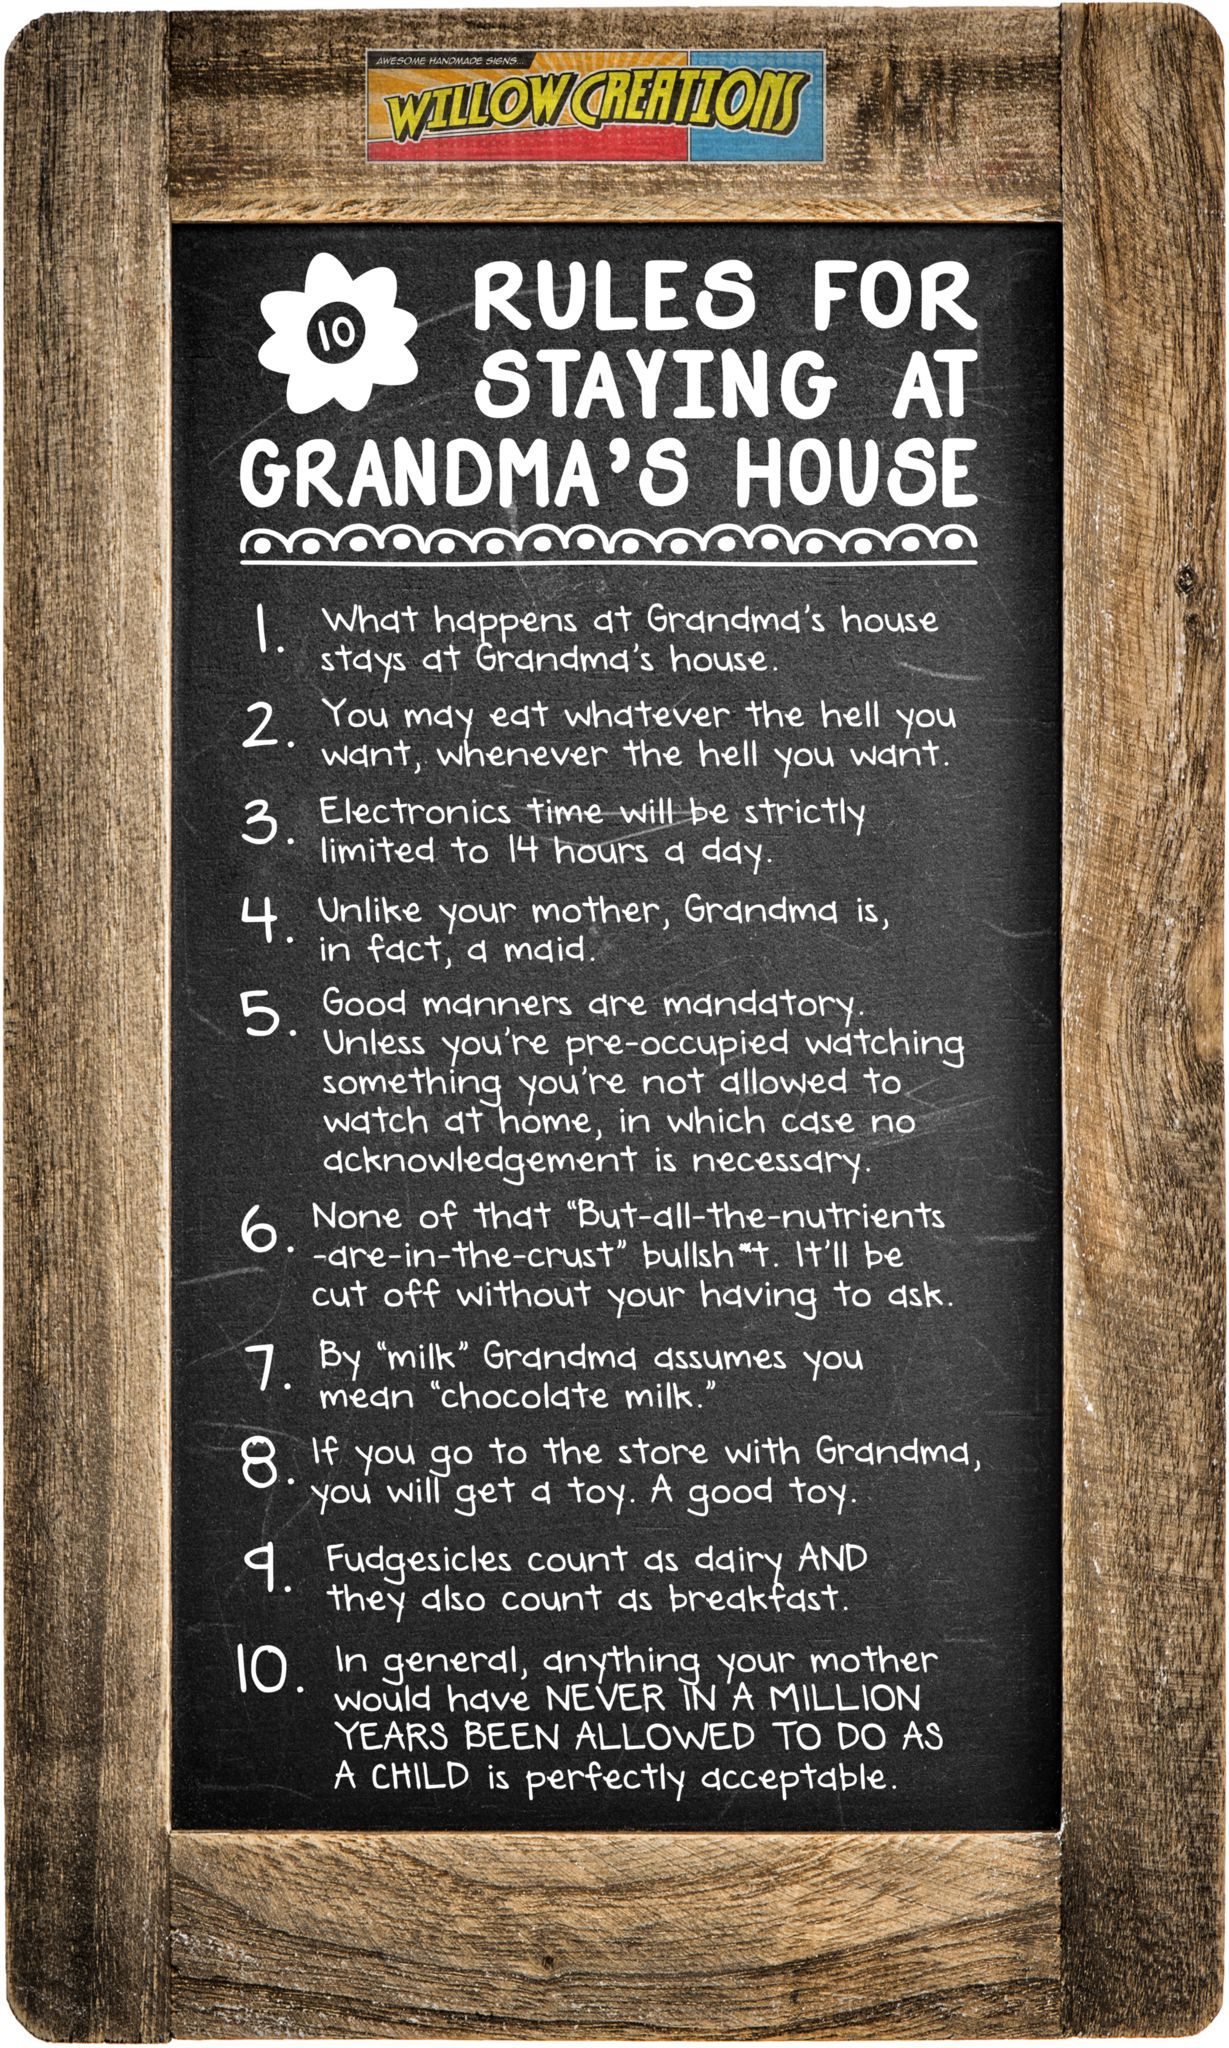 AWESOME HANDMADE SIGNS...
WILLOW CREATIONS
10 RULES FOR
STAYING AT
GRANDMA'S HOUSE
1. What happens at Grandma's house
stays at Grandma's house.
2. You may eat whatever the hell you
want, whenever the hell you want.
3. Electronics time will be strictly
limited to 14 hours a day.
4. Unlike your mother, Grandma is,
in fact, a maid.
5. Good manners are mandatory.
Unless you're pre-occupied watching
something you're not allowed to
watch at home, in which case no
acknowledgement is necessary.
6. None of that "But-all-the-nutrients
-are-in-the-crust" bullsh*t. It'll be
cut off without your having to ask.
7. By "milk" Grandma assumes you
mean "chocolate milk."
8. If you go to the store with Grandma,
you will get a toy. A good toy.
9. Fudgesicles count as dairy AND
they also count as breakfast.
10. In general, anything your mother
would have NEVER IN A MILLION
YEARS BEEN ALLOWED TO DO AS
A CHILD is perfectly acceptable.